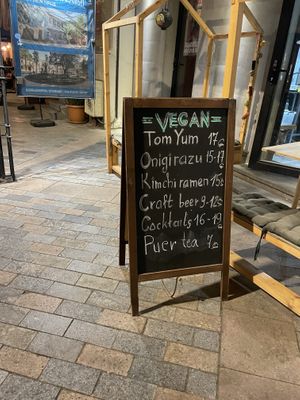 =VEGAN=
Tom Yum 17₾
Onigirazu 15-17₾
Kimchi ramen 15₾
Craft beer 9-12₾
Cocktails 16-19₾
Puer tea 7₾